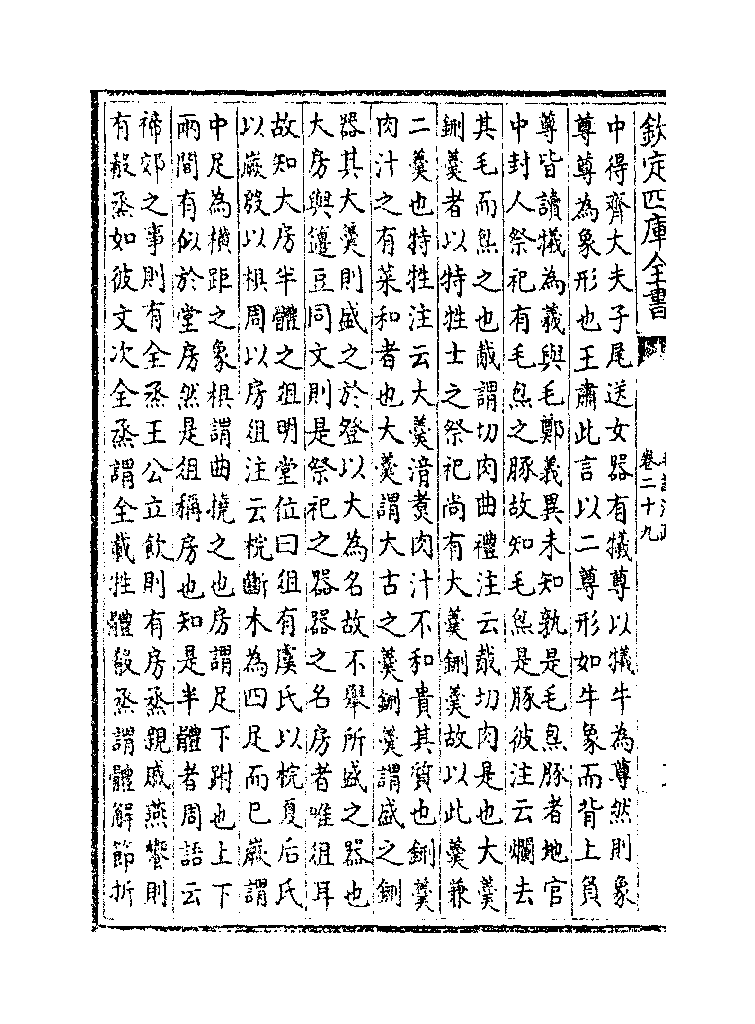 欽定四庫全書
卷二十九
中得齊大夫子尾送女器有犧尊以犧牛為尊然則象
尊尊為象形也王肅此言以二尊形如牛象而背上負
尊皆讀犧為羲與毛鄭義異未知孰是毛炰豚者地官
中封人祭祀有毛炰之豚故知毛炰是豚彼注云爓去
其毛而炰之也胾謂切肉曲禮注云胾切肉是也大羹
鉶羹者以特牲士之祭祀尚有大羹鉶羹故以此羹兼
二羹也特牲注云大羹湆煑肉汁不和貴其質也鉶羹
肉汁之有菜和者也大羹謂大古之羹鉶羹謂盛之鉶
器其大羹則盛之於登以大為名故不舉所盛之器也
大房與籩豆同文則是祭祀之器器之名房者唯俎耳
故知大房半體之俎明堂位曰俎有虞氏以梡夏后氏
以嶡殷以椇周以房俎注云梡斷木為四足而已嶡謂
中足為橫距之象椇謂曲撓之也房謂足下跗也上下
兩間有似於堂房然是俎稱房也知是半體者周語云
禘郊之事則有全烝王公立飲則有房烝親戚燕饗則
有殽烝如彼文次全烝謂全載牲體殽烝謂體解節折